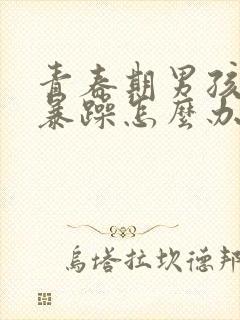 青春期男孩
暴躁怎麼办
乌塔拉坎德邦